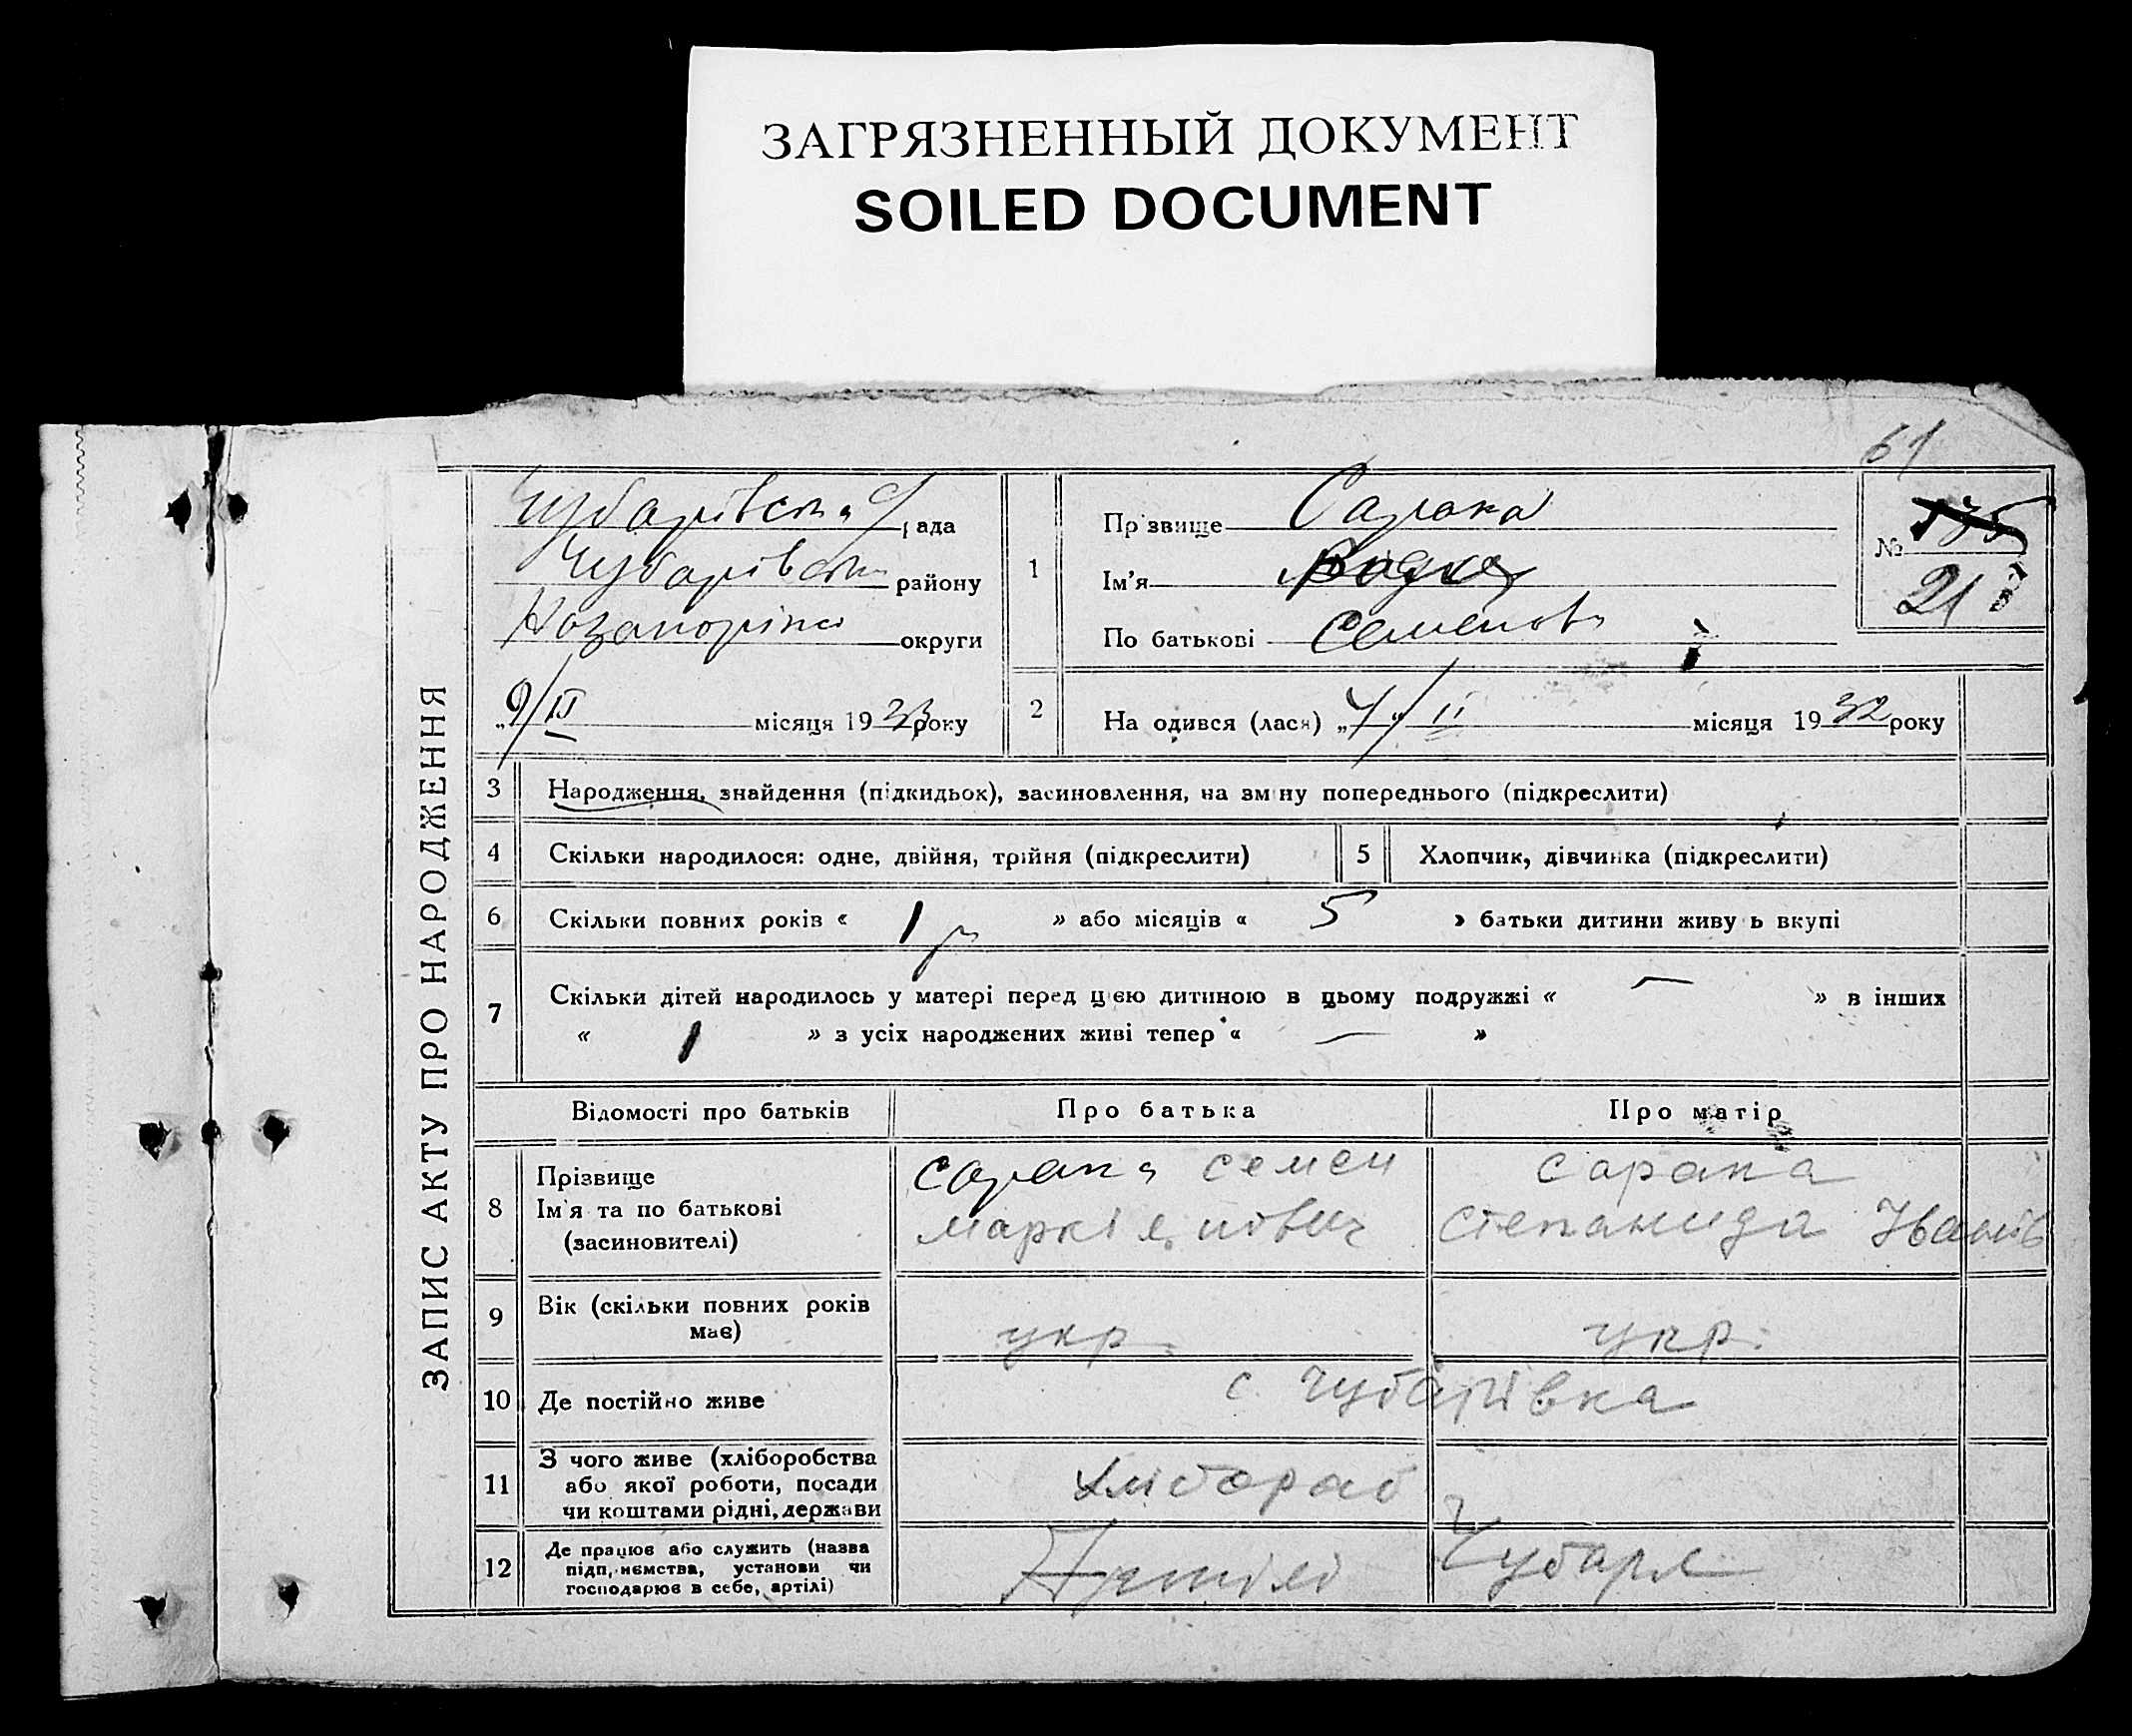 ЗАГРЯЗНЕННЫЙ ДОКУМЕНТ
SOILED DOCUMENT
61
ЗАПИС АКТУ ПРО НАРОДЖЕННЯ
рада
Чубарівськ району
округи
9/II місяця 1933 року
1
Прізвище Сарана
Ім'я
По батькові Семенов
№ 175
21
2 На одився (лася) „7/" II місяця 1932 року
3 Народження, знайдення (підкидьок), засиновлення, на зміну попереднього (підкреслити)
4 Скільки народилося: одне, двійня, трійня (підкреслити)
5 Хлопчик, дівчинка (підкреслити)
6 Скільки повних років « 1 р » або місяців « 5 » батьки дитини живу ь вкупі
7 Скільки дітей народилось у матері перед цією дитиною в цьому подружжі « — » в інших
« 1 » з усіх народжених живі тепер « — »
Відомості про батьків Про батька Про матір
8 Прізвище
Ім'я та по батькові
(засиновителі)
Сарана Семен
Маркіянович
Сарана
Степанида Іванів
9 Вік (скільки повних років
має)
укр. укр.
10 Де постійно живе с. Чубарівка
11 З чого живе (хліборобства
або якої роботи, посади
чи коштами рідні, держави
хлібораб
12 Де працює або служить (назва
підприємства, установи чи
господарює в себе, артілі)
Артілі Чубаря